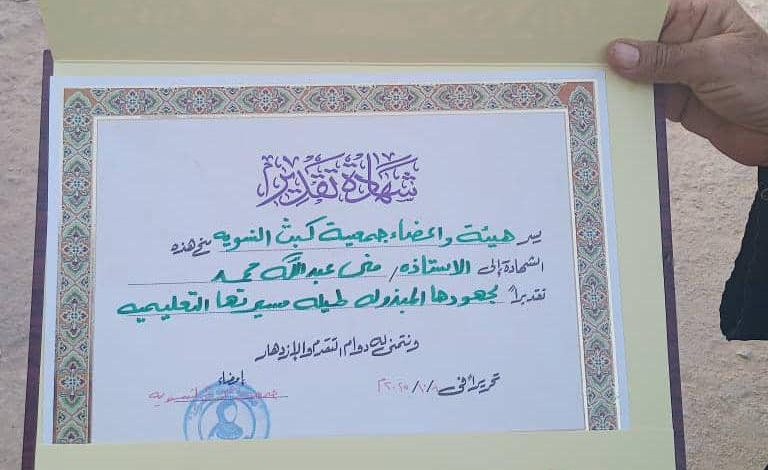 شهادة تقدير
يسر هيئة واعضاء جمعية كبث النسويه منح هذه
الشهادة إلى الاستاذه/ منى عبدالله حمد
تقديراً لجهودها المبذوله طيله مسيرتها التعليميه
ونتمنى له دوام التقدم والإزدهار
تحريراً في ٢٠٢٥/١٠/٨م
إمضاء